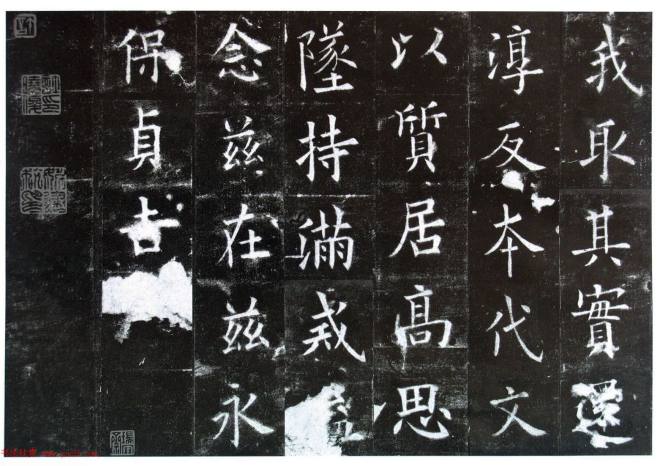 我取其實還
淳反本代文
以質居高思
墜持滿戒溢
念兹在兹永
保貞吉